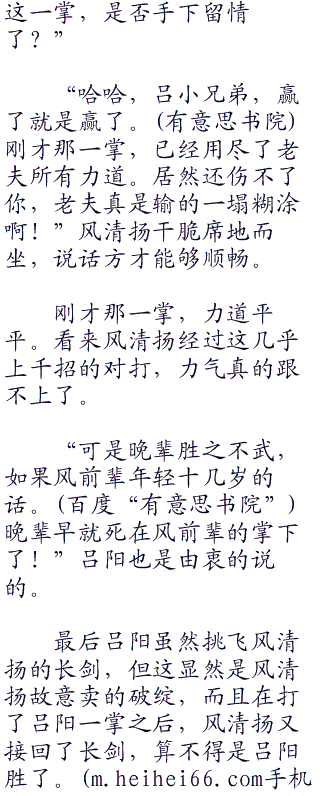 这一掌，是否手下留情
了？”
“哈哈，吕小兄弟，赢
了就是赢了。(有意思书院)
刚才那一掌，已经用尽了老
夫所有力道。居然还伤不了
你，老夫真是输的一塌糊涂
啊！”风清扬干脆席地而
坐，说话方才能够顺畅。
刚才那一掌，力道平
平。看来风清扬经过这几乎
上千招的对打，力气真的跟
不上了。
“可是晚辈胜之不武，
如果风前辈年轻十几岁的
话。(百度“有意思书院”)
晚辈早就死在风前辈的掌下
了！”吕阳也是由衷的说
的。
最后吕阳虽然挑飞风清
扬的长剑，但这显然是风清
扬故意卖的破绽，而且在打
了吕阳一掌之后，风清扬又
接回了长剑，算不得是吕阳
胜了。(m.heihei66.com手机